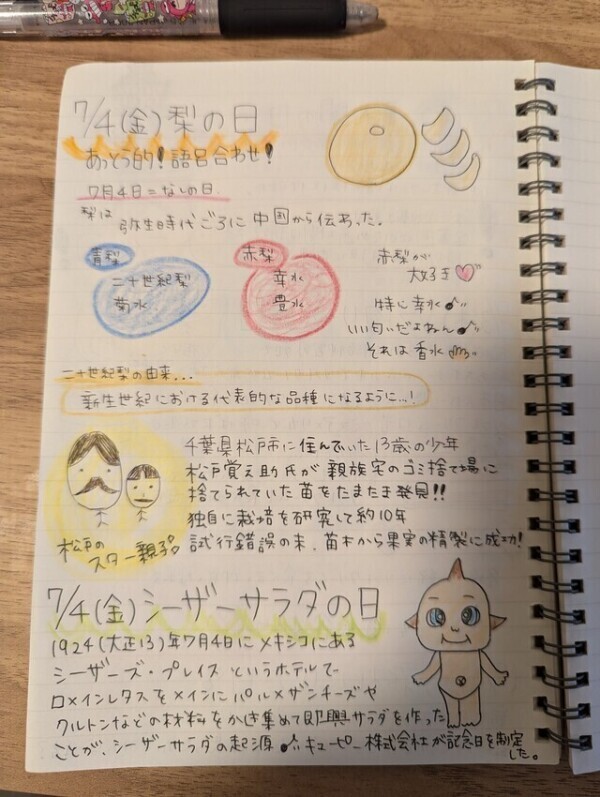 7/4(金)梨の日
あっとう的!語呂合わせ!
7月4日=なしの日
梨は 弥生時代ごろに中国から伝わった。
青梨
二十世紀梨
菊水
赤梨
幸水
豊水
赤梨が
大好き
特に幸水♪
いい匂いだよねん♪
それは香水
二十世紀梨の由来...
新生世紀における代表的な品種になるように...!
千葉県松戸市に住んでいた13歳の少年
松戸覚之助氏が親族宅のゴミ捨て場に
捨てられていた苗をたまたま発見!!
独自に栽培を研究して約10年
試行錯誤の末、苗木から果実の精製に成功!
松戸の
スター親子。
7/4(金)シーザーサラダの日
1924(大正13)年7月4日にメキシコにある
シーザーズ・プレイスというホテルで
ロメインレタスをメインにパルメザンチーズや
クルトンなどの材料をかき集めて即興サラダを作った
ことが、シーザーサラダの起源♪キューピー株式会社が記念日を制定
した。